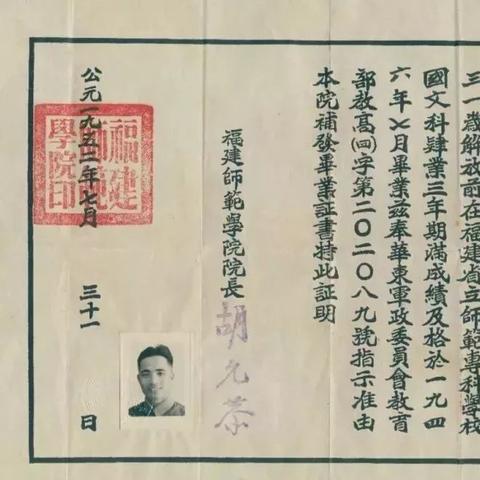 三一歲解放前在福建省立師範專科學校
國文科肄業三年期滿成績及格於一九四
六年七月畢業兹奉華東軍政委員會教育
部教高(四)字第二〇二〇八九號指示准由
本院補發畢業証書特此証明
福建師範學院院長 胡允恭
公元一九五二年七月三十一日
福建師範學院印